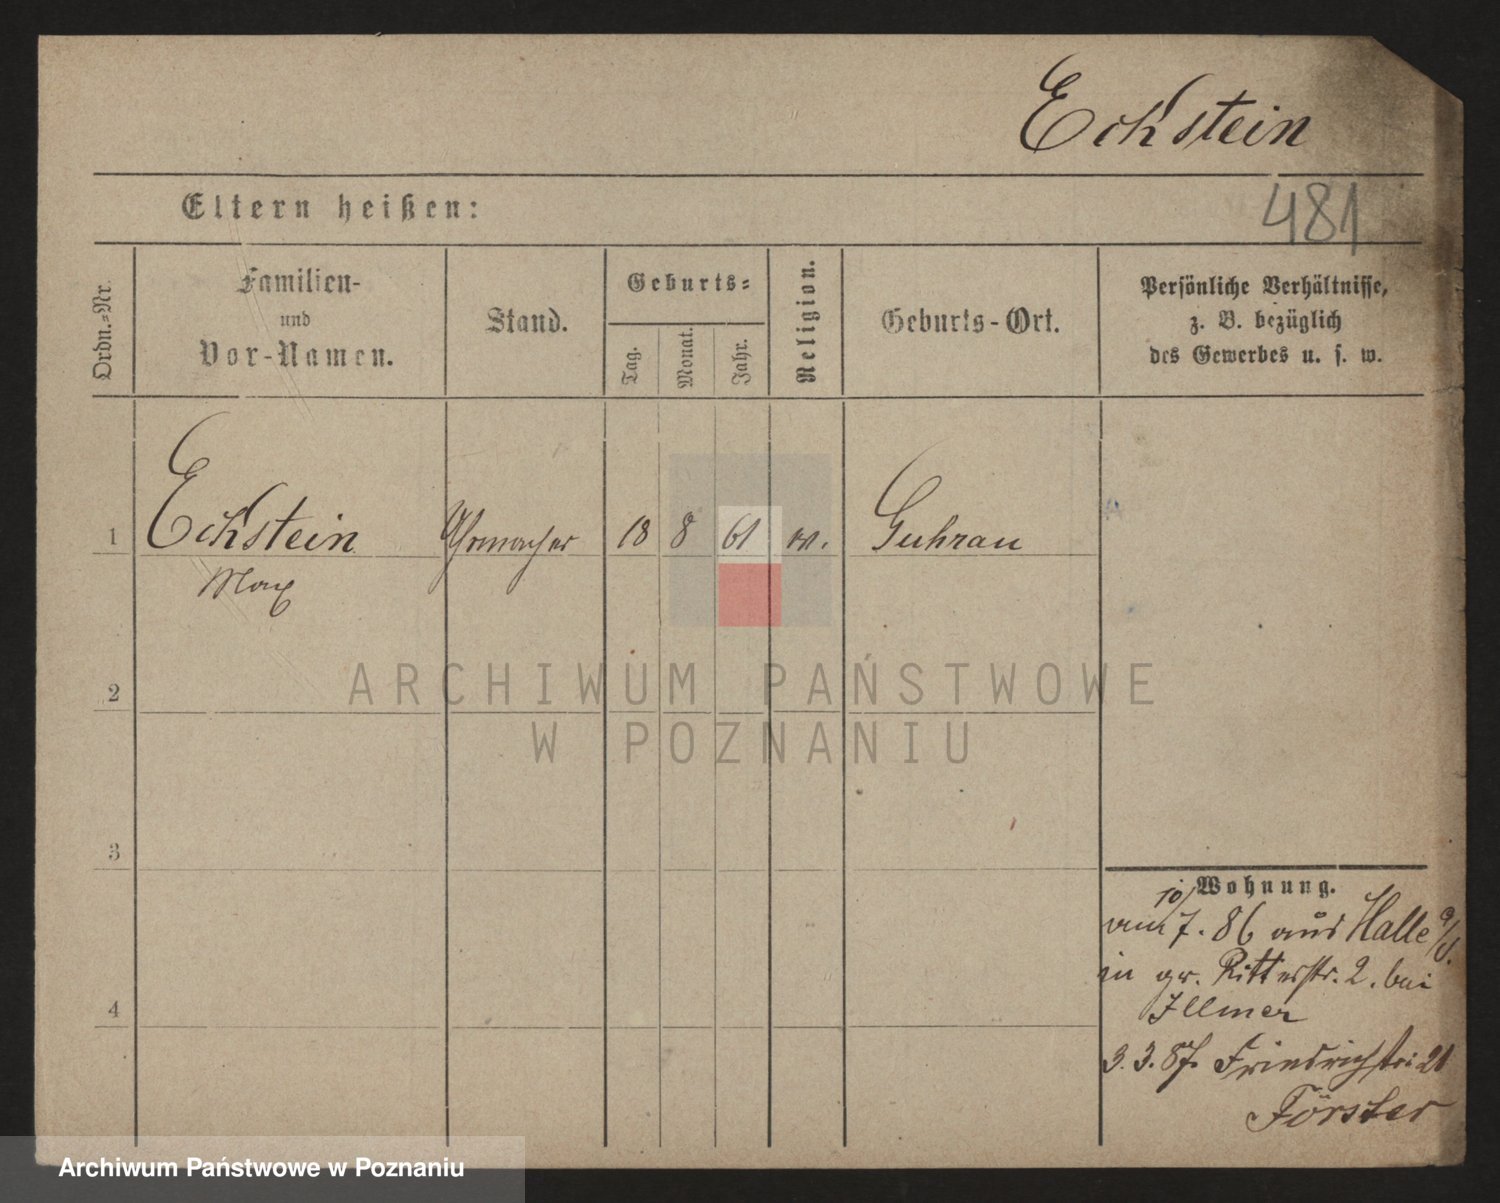 Eckstein
Eltern heißen:
481
Ordn.-Nr.
Familien-
und
Vor-Namen.
Stand.
Geburts-
Tag.
Monat.
Jahr.
Religion.
Geburts-Ort.
Persönliche Verhältnisse,
z. B. bezüglich
des Gewerbes u. s. w.
1 Eckstein Uhrmacher 18 8 61 Guhrau
Max
ARCHIWUM PAŃSTWOWE
W POZNANIU
2
3
4
Wohnung.
am 10/7. 86 aus Halle a/S.
in gr. Ritterstr. 2. bei
Illmer
3.3.87. Friedrichstr. 21
Förster
Archiwum Państwowe w Poznaniu